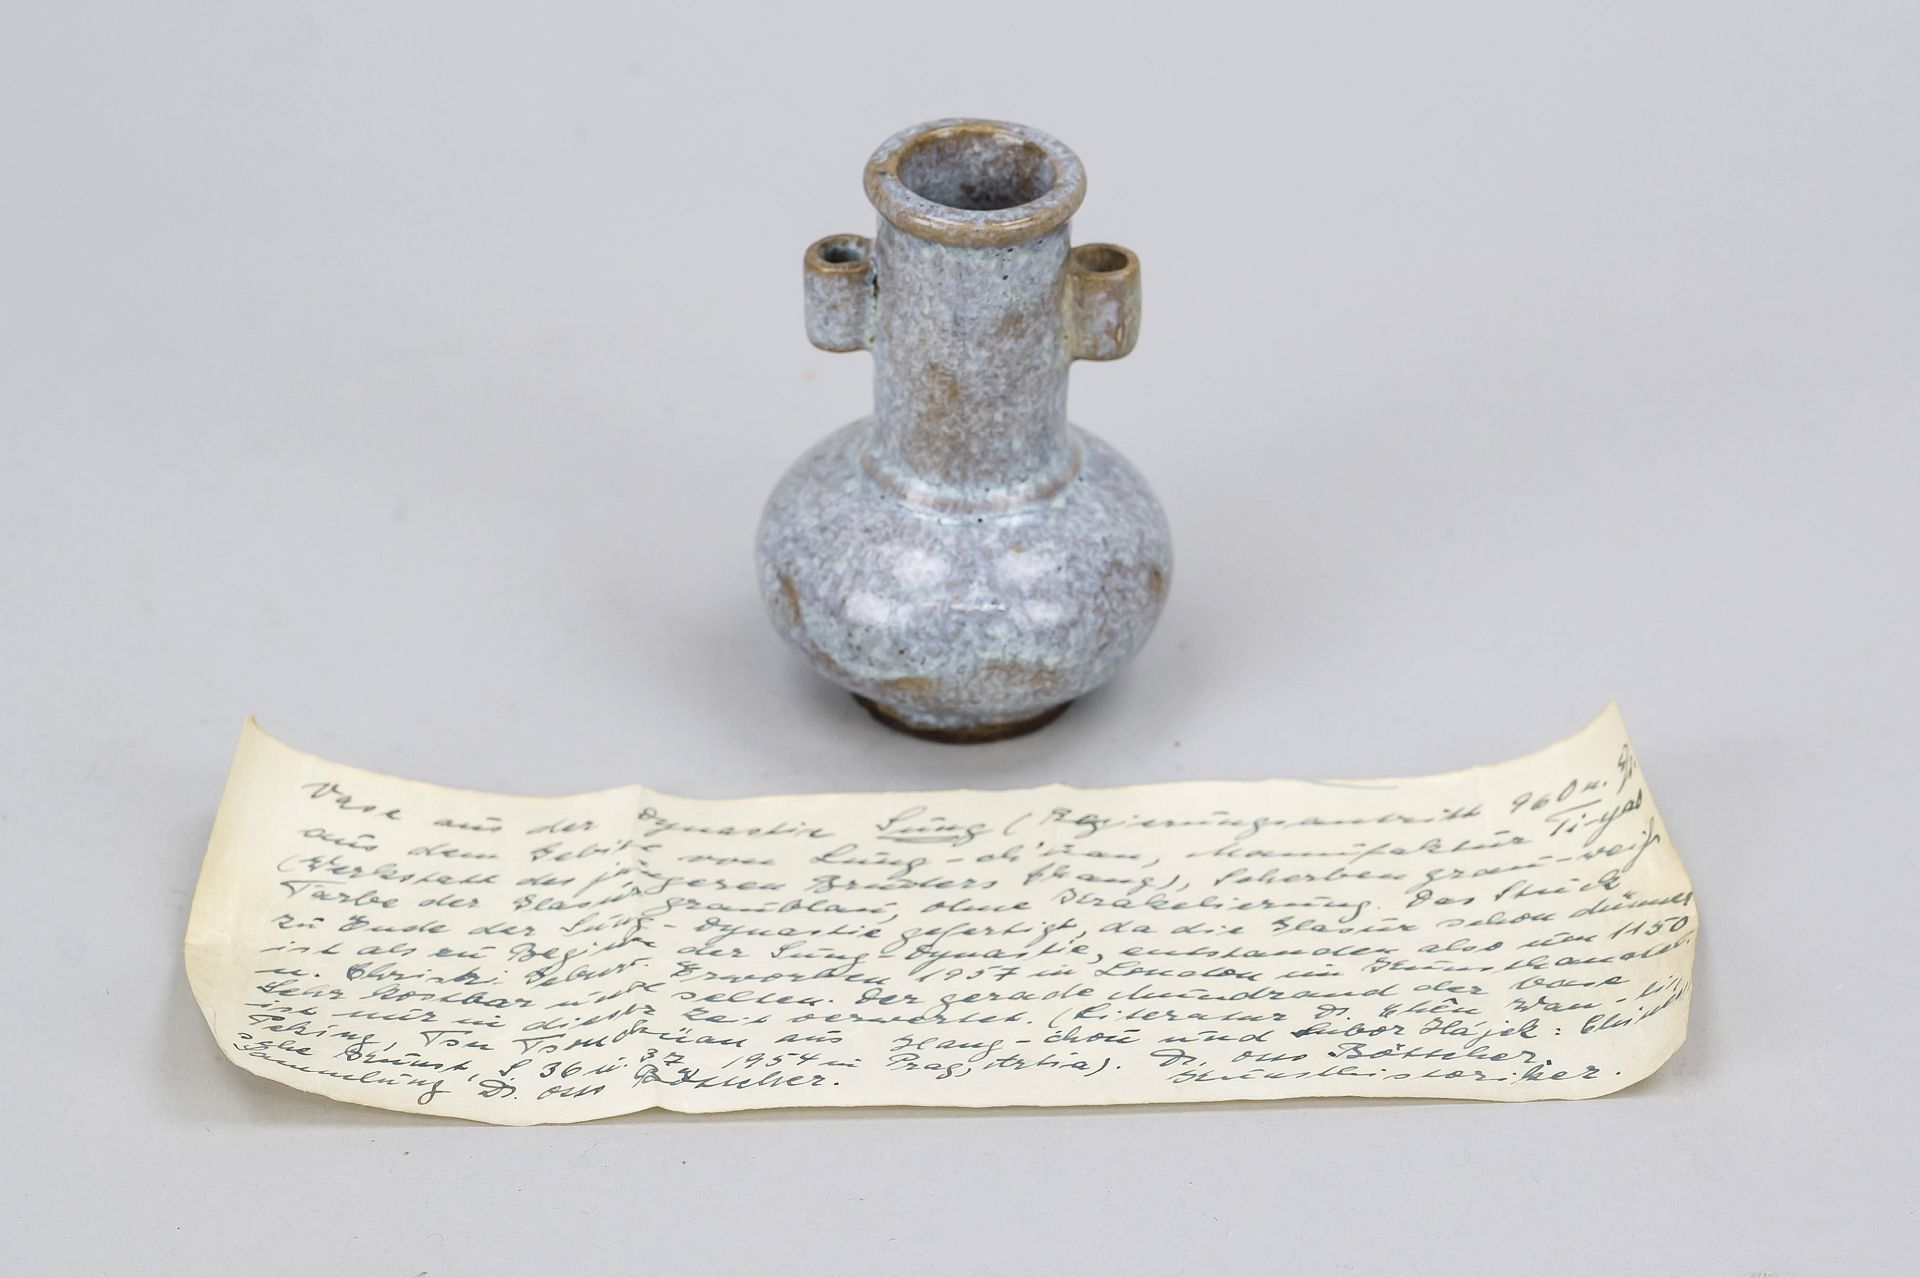 Vase aus der Dynastie Sung (Regierungsantritt 960 n. Chr.
aus dem Gebiet von Lung-ch'üan, Manufaktur Ti-yao
(Werkstatt des jüngeren Bruders Chang), Scherben grau-weiß
Farbe der Glasur graublau, ohne Krakelierung. Das Stück
zu Ende der Sung-Dynastie gefertigt, da die Glasur schon dünner
ist als zu Beginn der Sung-Dynastie, entstanden also um 1150
n. Christi Geburt. Erworben 1957 in London im Kunsthandel.
Sehr kostbar und selten. Der gerade Mundrand der Vase
ist nur in dieser Zeit verwertet. (Literatur Dr. Chên Wan-li,
Peking, Tsu Tsou aus Hang-chou und Lubor Hájek: Chinesi
sche Kunst, S 36 u. 37, 1954 in Prag, Artia). Dr. Otto Böttcher.
Sammlung Dr. Otto Böttcher. Kunsthistoriker.